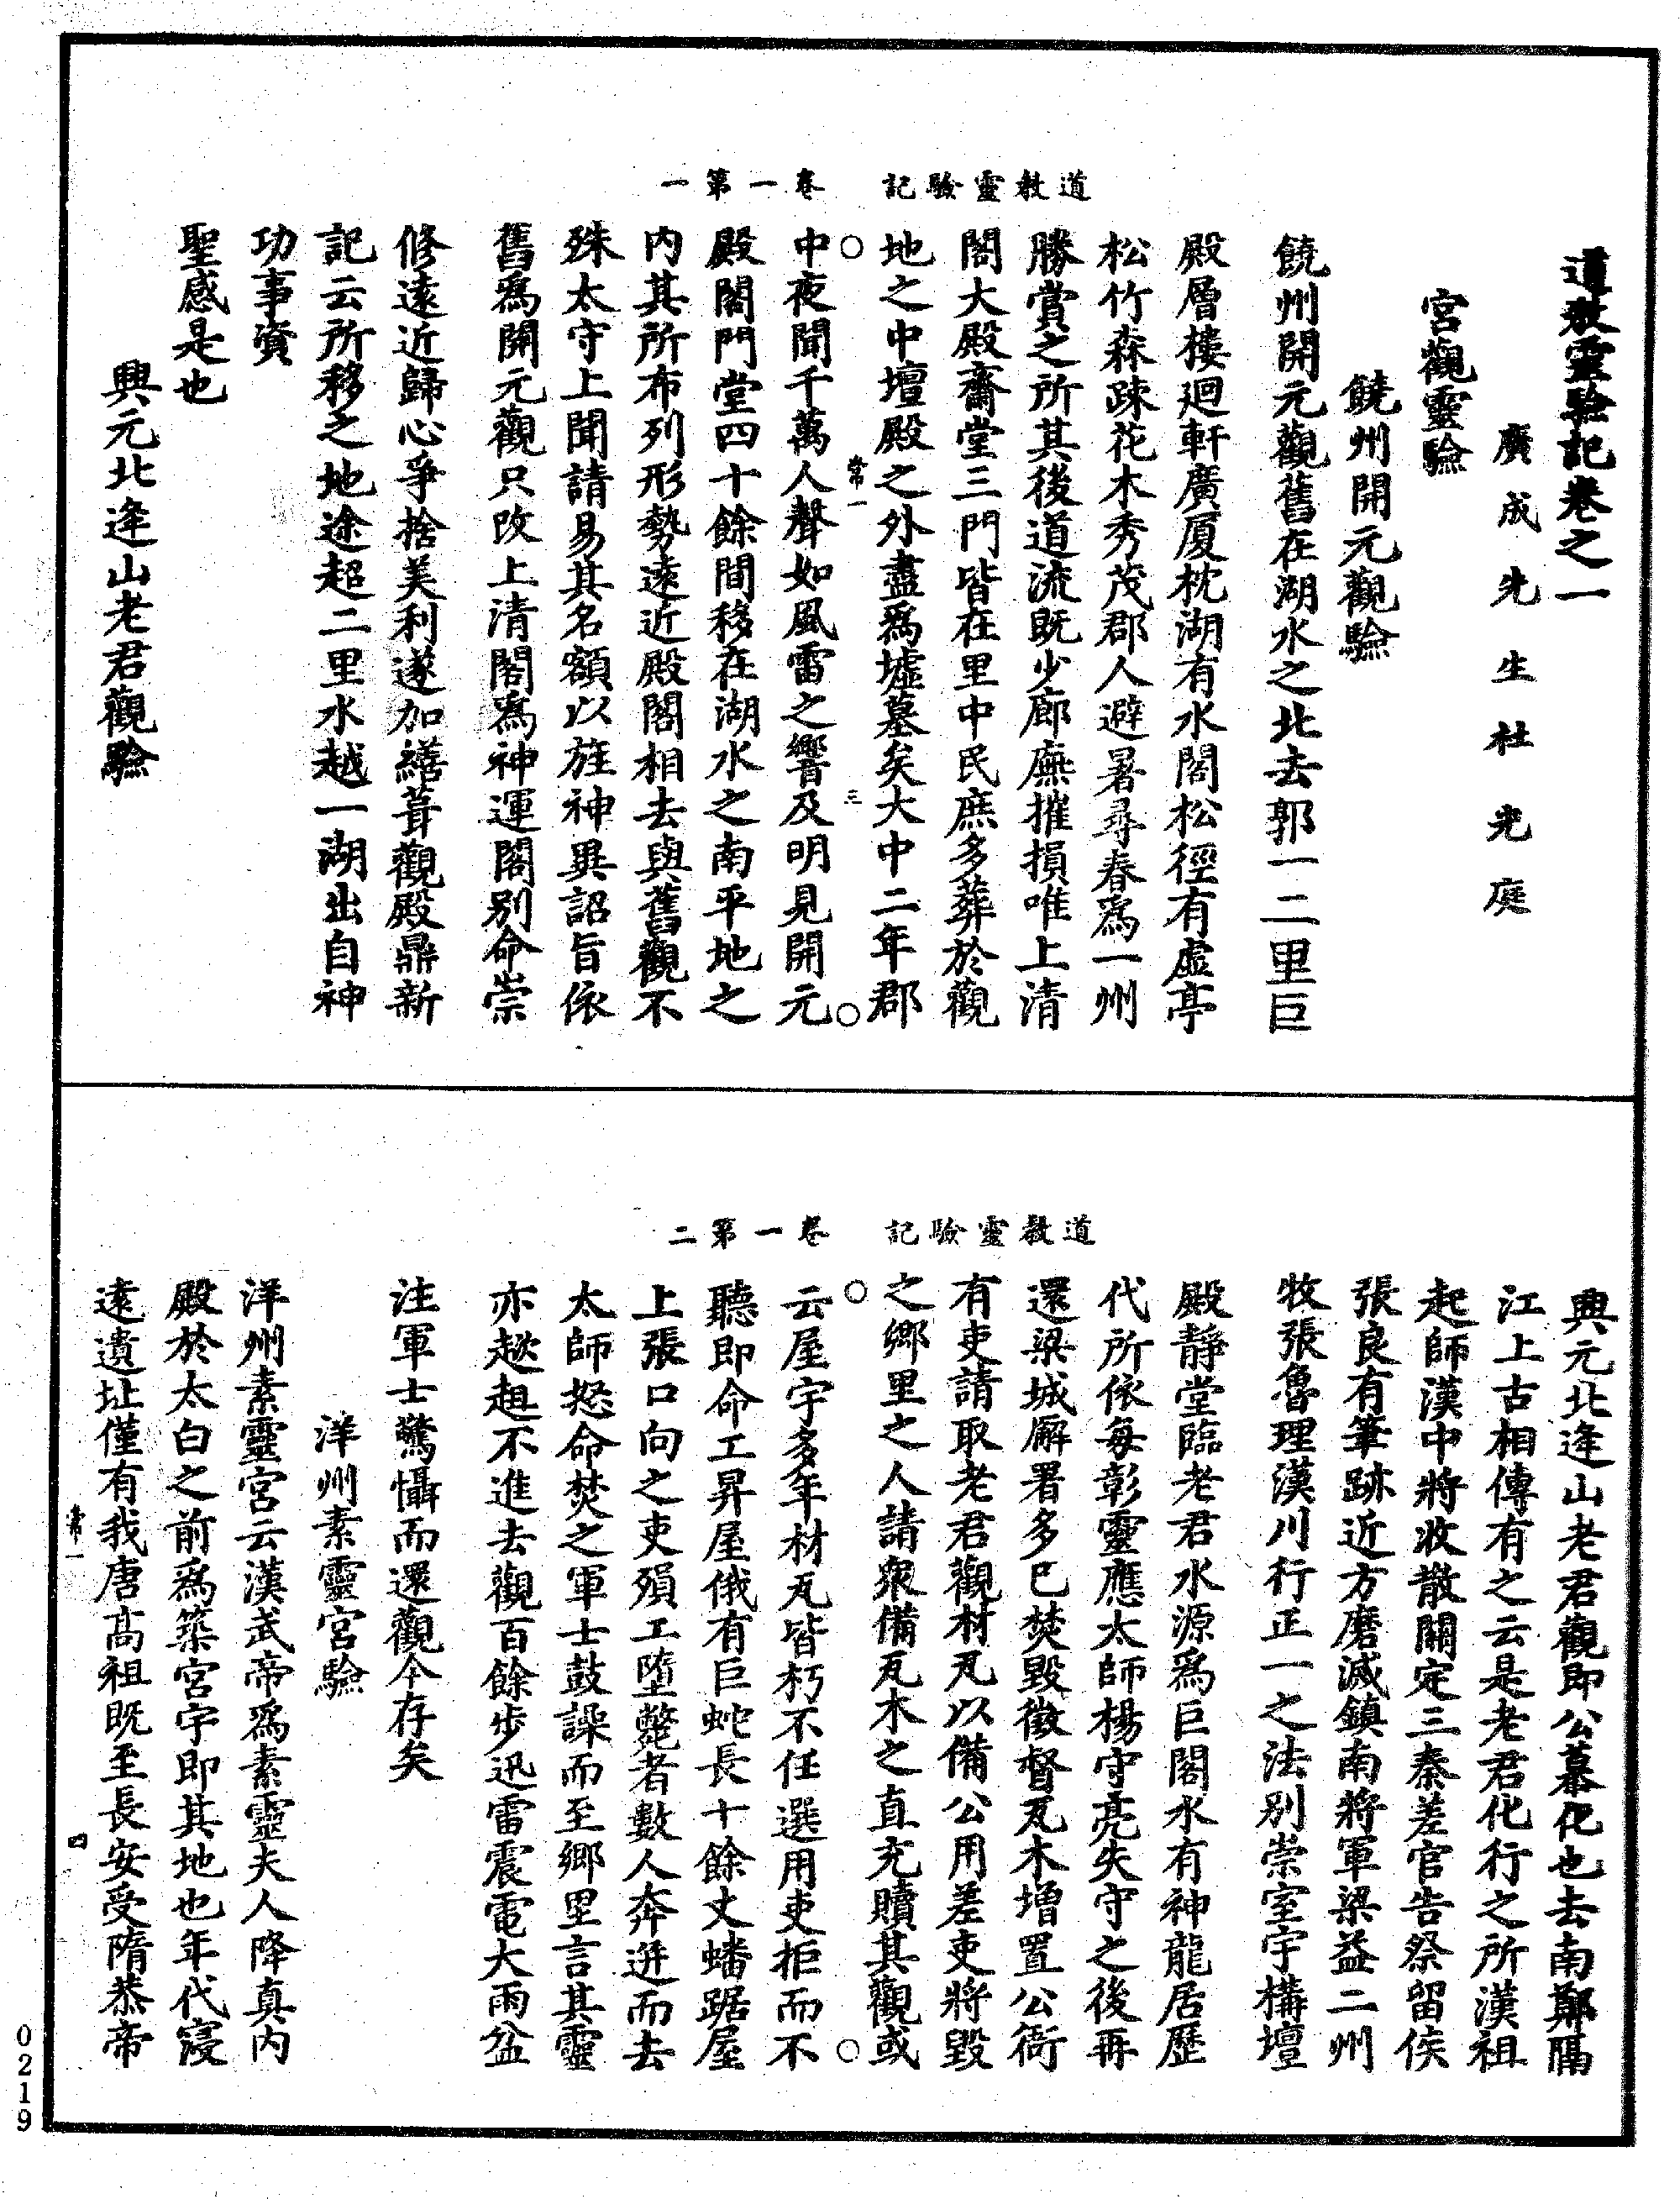 道教靈驗記卷之一
廣成先生杜光庭
宮觀靈驗
饒州開元觀驗
饒州開元觀舊在湖水之北去郭一二里巨
殿層樓迴軒廣厦枕湖有水閣松徑有虛亭
松竹森疎花木秀茂郡人避暑尋春爲一州
勝賞之所其後道流既少廊廡摧損唯上清
閣大殿齋堂三門皆在里中民庶多葬於觀
地之中壇殿之外盡爲墟墓矣大中二年郡
道教靈驗記 卷一第一
常一 三
中夜聞千萬人聲如風雷之響及明見開元
殿閣門堂四十餘間移在湖水之南平地之
內其所布列形勢遠近殿閣相去與舊觀不
殊太守上聞請易其名額以旌神異詔旨依
舊爲開元觀只改上清閣爲神運閣別命崇
修遠近歸心爭捨美利遂加繕葺觀殿鼎新
記云所移之地途超二里水越一湖出自神
功事資
聖感是也
興元北逄山老君觀驗
興元北逄山老君觀即公慕化也去南鄭隔
江上古相傳有之云是老君化行之所漢祖
起師漢中將收散關定三秦差官告祭留侯
張良有筆跡近方磨滅鎮南將軍梁益二州
牧張魯理漢川行正一之法別崇室宇構壇
殿靜堂臨老君水源爲巨閣水有神龍居歷
代所依每彰靈應太師楊守亮失守之後再
還梁城廨署多已焚毀徵督瓦木增置公衙
有吏請取老君觀材瓦以備公用差吏將毀
之鄉里之人請衆備瓦木之直充贖其觀或
道教靈驗記 卷一第二
云屋宇多年材瓦皆朽不任選用吏拒而不
聽即命工昇屋俄有巨蛇長十餘丈蟠踞屋
上張口向之吏殞工墮斃者數人奔迸而去
太師怒命焚之軍士鼓譟而至鄉里言其靈
亦趑趄不進去觀百餘步迅雷震電大雨盆
注軍士驚懾而還觀今存矣
洋州素靈宮驗
洋州素靈宮云漢武帝爲素靈夫人降真內
殿於太白之前爲築宮宇即其地也年代寖
遠遺址僅有我唐高祖既至長安受隋恭帝
常一 四
0219